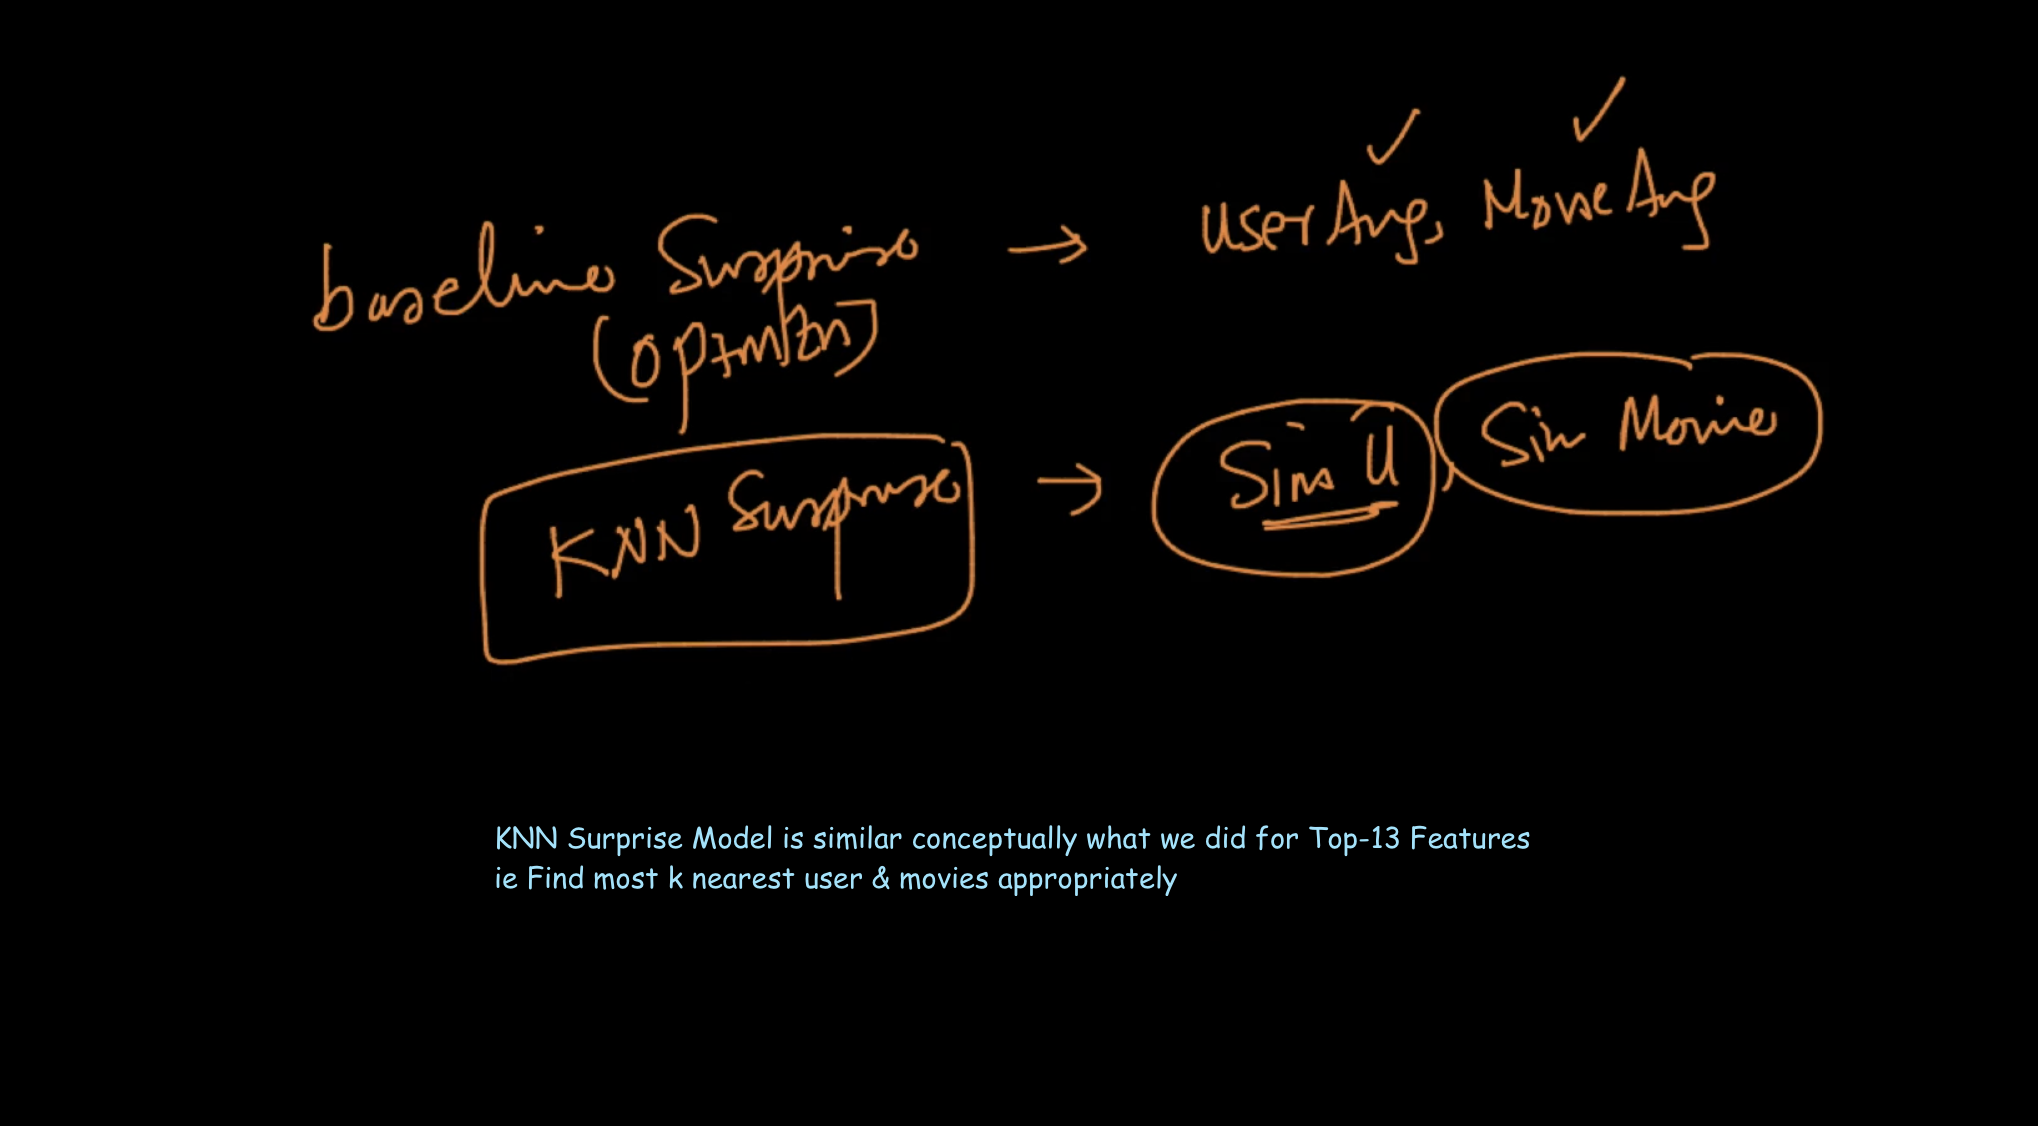 baseline Surprise → User Avg, Movie Avg
(optmizn)
KNN Surprise → Sim U, Sim Movie
KNN Surprise Model is similar conceptually what we did for Top-13 Features
ie Find most k nearest user & movies appropriately